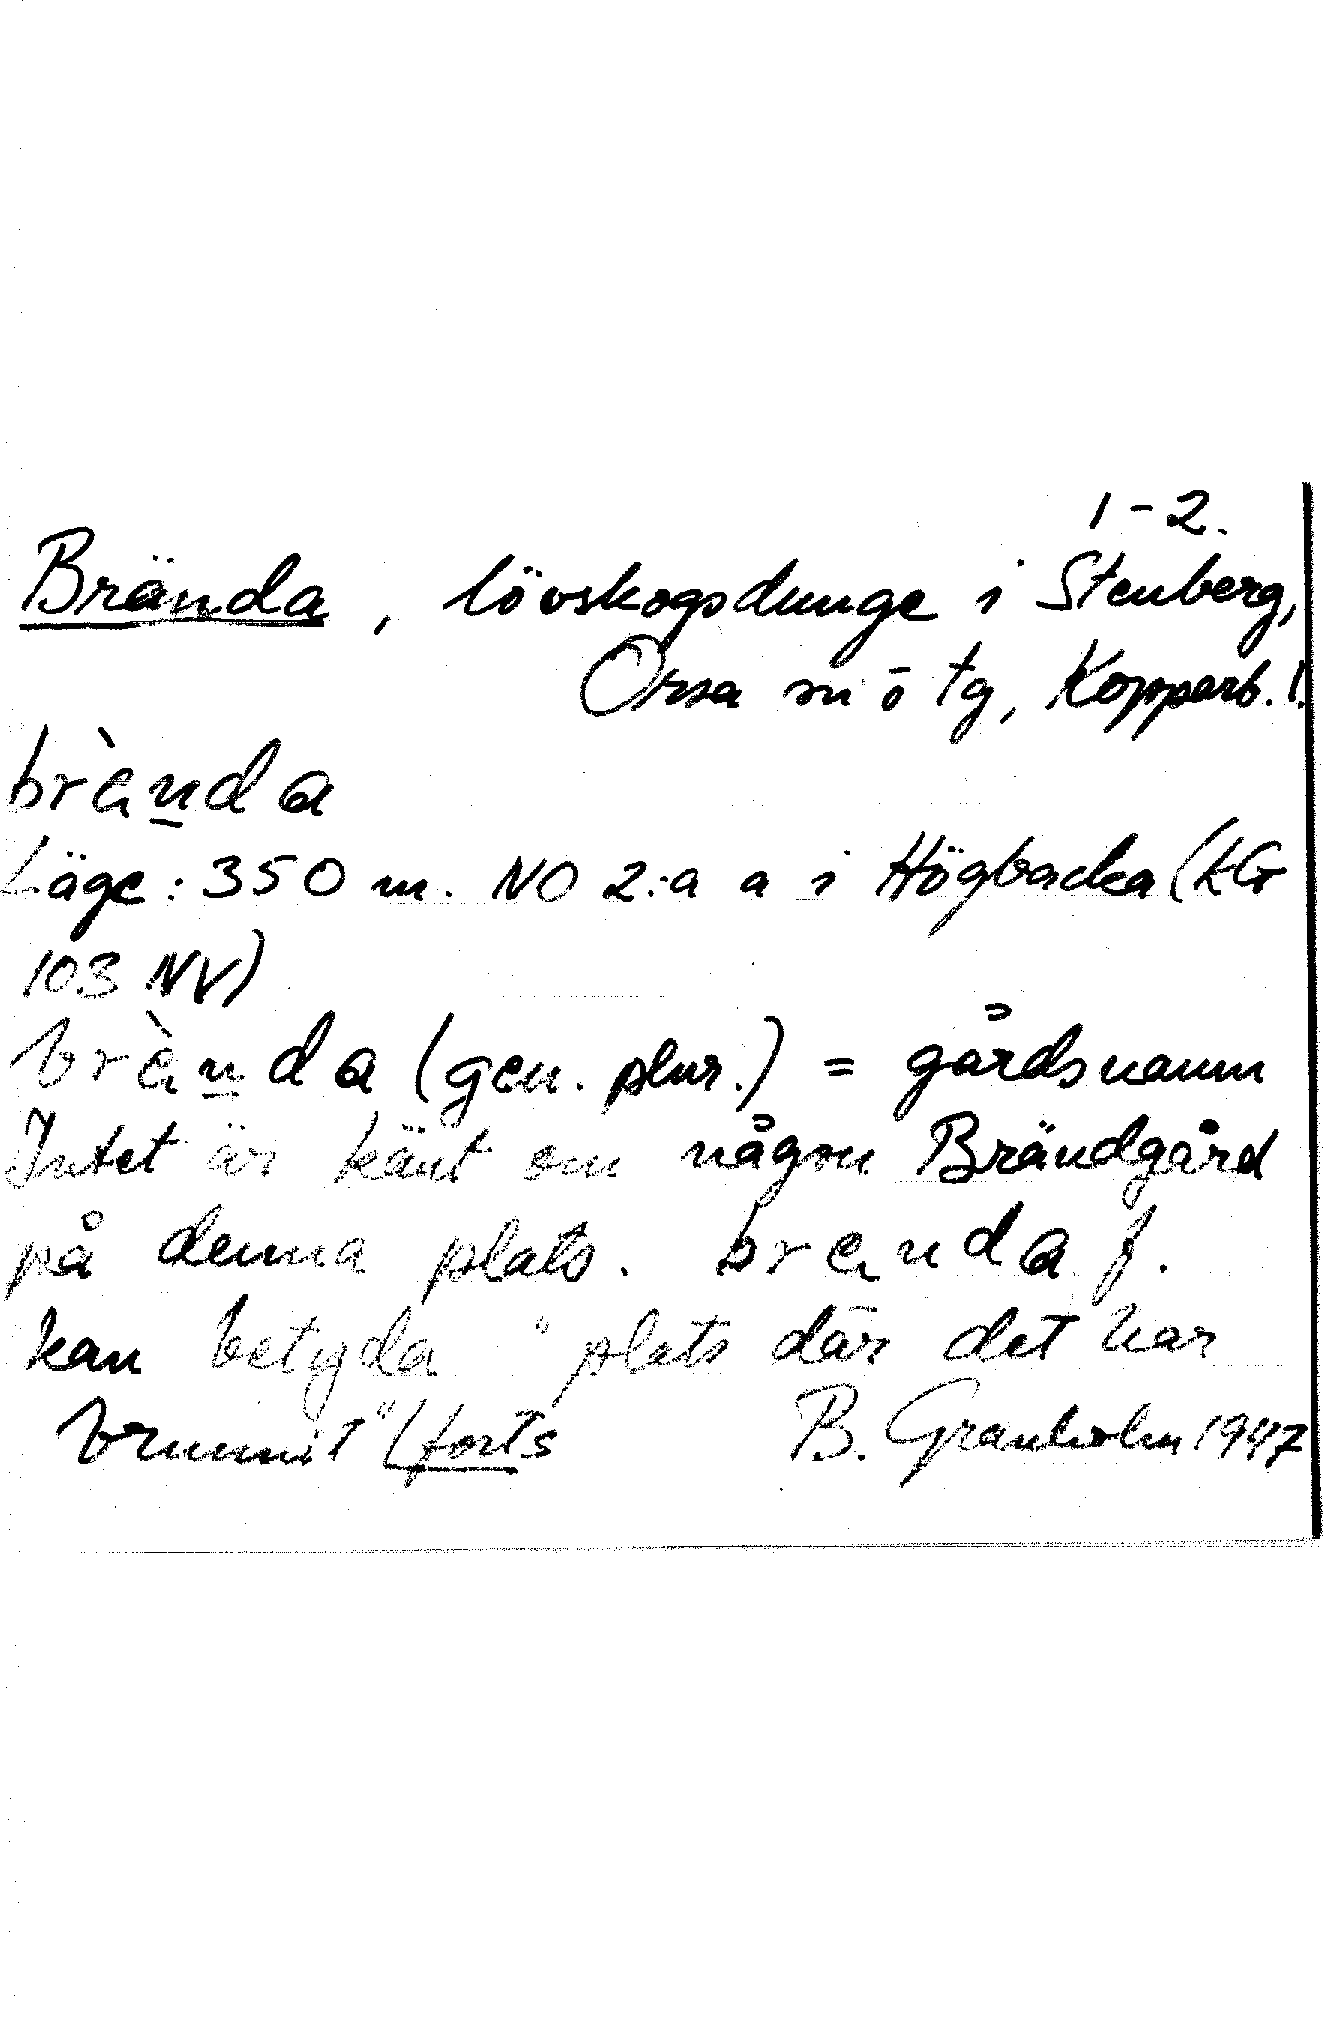 1-2.
Brända, lövskogsdunge i Stenberg,
Orsa sn o tg, Kopparb. l.
brènda
Läge: 350 m. NO 2:a a i Högbacka (KG
103 NV)
brènda (gen. plur.) = gårdsnamn
Intet är känt om någon Brändgård
på denna plats. brenda f.
kan betyda "plats där det har
brunnit" (forts B. Granholm 1947